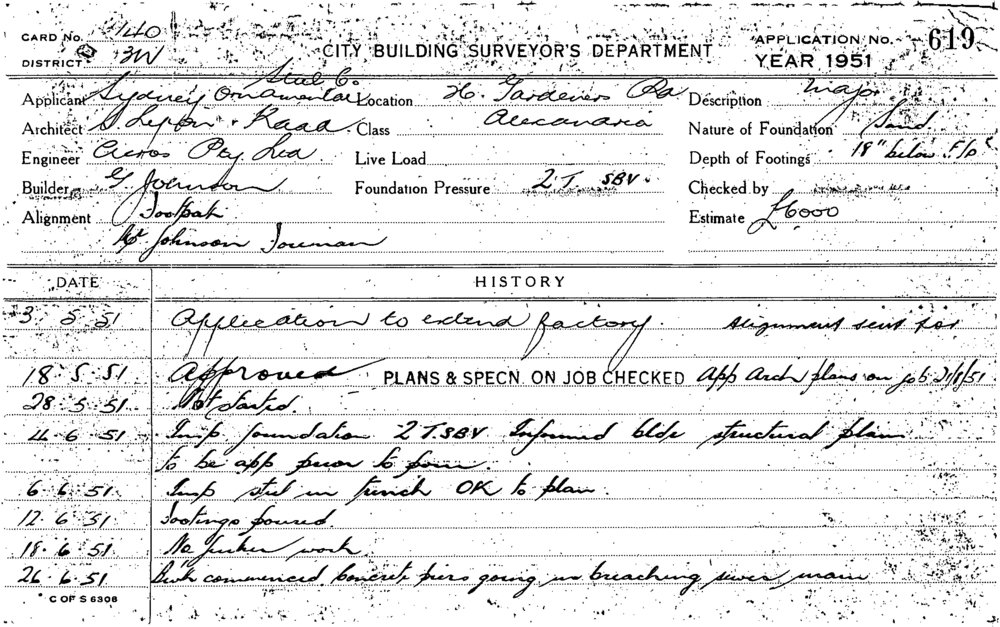 CARD No. 140
DISTRICT 3W
CITY BUILDING SURVEYOR'S DEPARTMENT
APPLICATION No. 619
YEAR 1951
Applicant Sydney Ornamental Steel Co.
Location Gardeners Rd
Alexandria
Description Major
Architect
Class
Nature of Foundation Sand
Engineer Pty Ltd
Live Load
Depth of Footings 18" below F/P
Builder G Johnson
Foundation Pressure 2 T. SBV.
Checked by
Alignment Footpath
Estimate £6000
Mr Johnson Foreman
DATE HISTORY
3. 5. 51 Application to extend factory. Alignment sent for
18. 5. 51 Approved PLANS & SPECN. ON JOB CHECKED App Arch plans on job
28. 5. 51 Not started.
4. 6. 51 Insp foundation 2 T. SBV Informed bldr structural plans
to be app prior to pour.
6. 6. 51. Insp steel in trench OK to plan.
12. 6. 51 Footings poured.
18. 6. 51 No further work.
26. 6. 51 Bwk commenced Concrete piers going in breaching sewer main
C OF S 6308